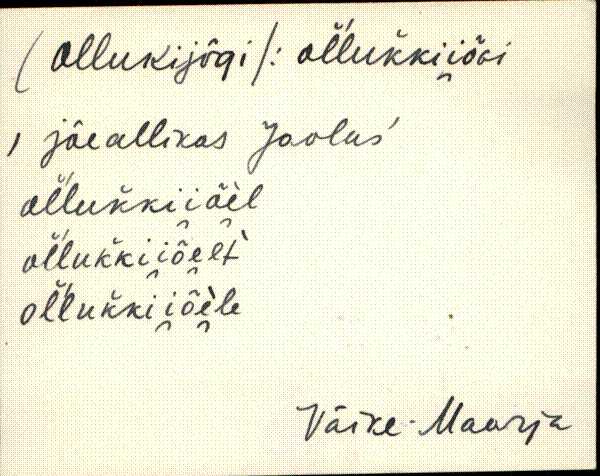 (Ollukijõgi): ol̆lukkii̯õǵi
, jõeallikas Joolas'
ol̆lukkii̯õe̯l
ol̆lukkii̯õe̯lt`
ol̆lukkii̯õe̯le
Väike-Maarja